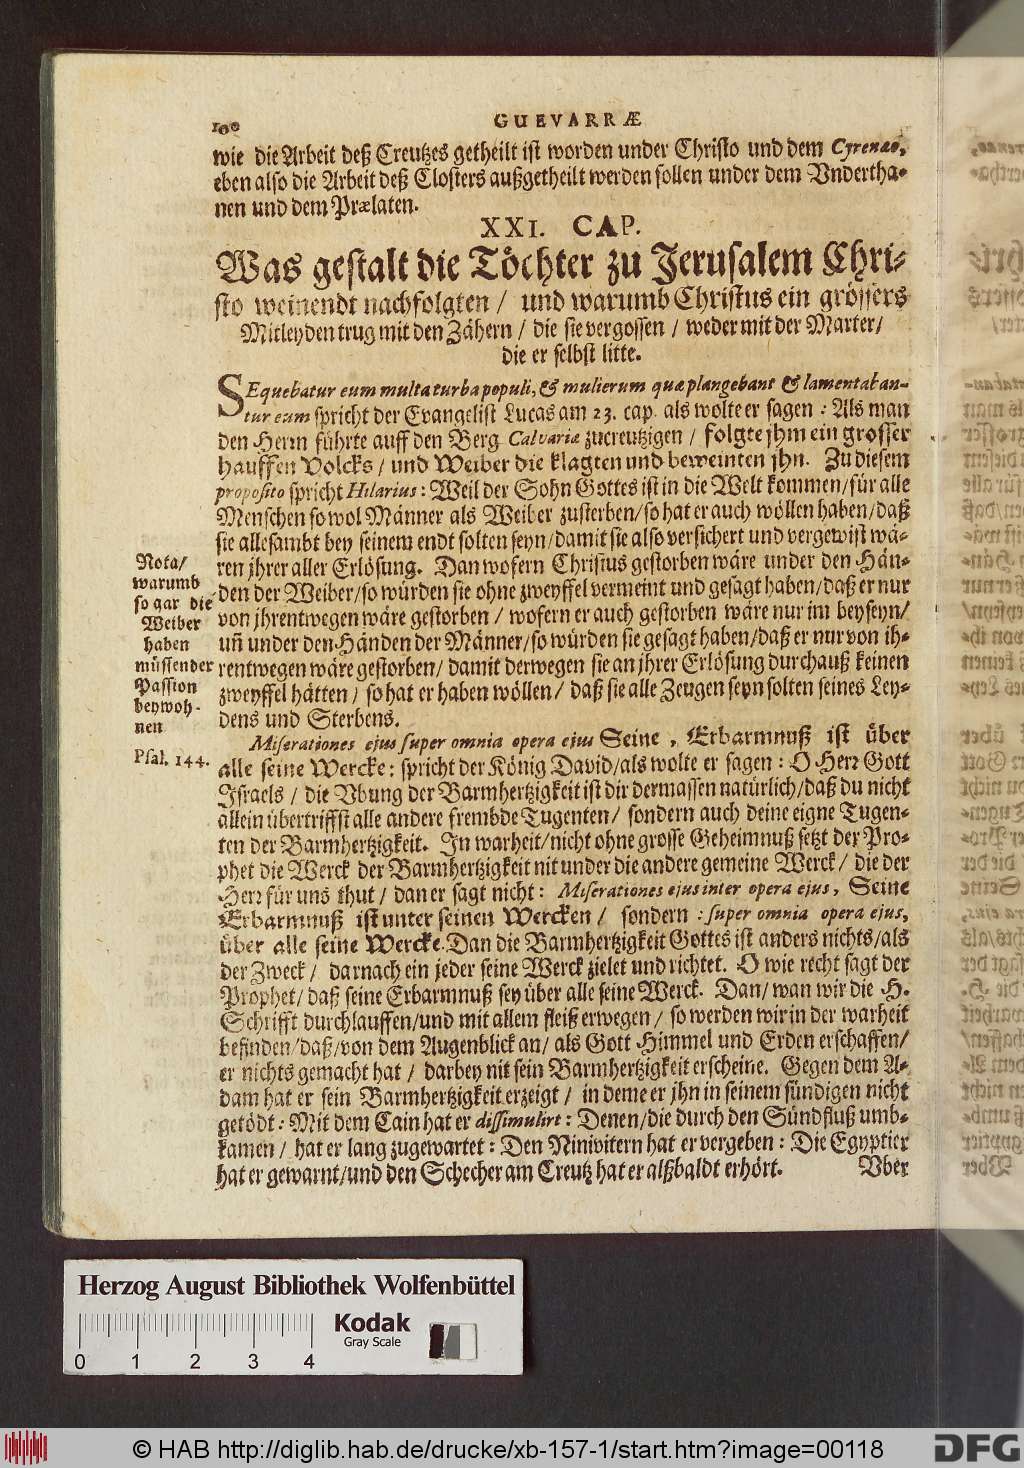 100
GUEVARRÆ
wie die Arbeit deß Creutzes getheilt ist worden under Christo und dem Cyrenæo,
eben also die Arbeit deß Closters außgetheilt werden sollen under dem Vndertha-
nen und dem Prælaten.
XXI. CAP.
Was gestalt die Töchter zu Jerusalem Chri-
sto weinendt nachfolgten / und warumb Christus ein grössers
Mitleyden trug mit den Zähern / die sie vergossen / weder mit der Marter /
die er selbst litte.
SEquebatur eum multa turba populi, & mulierum quæ plangebant & lamentaban-
tur eum spricht der Evangelist Lucas am 23. cap. als wolte er sagen : Als man
den Herrn führte auff den Berg Calvariæ zucreutzigen / folgte jhm ein grosser
hauffen Volcks / und Weiber die klagten und beweinten jhn. Zu diesem
proposito spricht Hilarius : Weil der Sohn Gottes ist in die Welt kommen / für alle
Menschen so wol Männer als Weiber zusterben / so hat er auch wöllen haben / daß
sie allesambt bey seinem endt solten seyn / damit sie also versichert und vergewist wä-
ren jhrer aller Erlösung. Dan wofern Christus gestorben wäre under den Hän-
den der Weiber / so würden sie ohne zweyffel vermeint und gesagt haben / daß er nur
von jhrentwegen wäre gestorben / wofern er auch gestorben wäre nur im beyseyn /
uñ under den Händen der Männer / so würden sie gesagt haben / daß er nur von ih-
rentwegen wäre gestorben / damit derwegen sie an jhrer Erlösung durchauß keinen
zweyffel hätten / so hat er haben wöllen / daß sie alle Zeugen seyn solten seines Ley-
dens und Sterbens.
Nota /
warumb
so gar die
Weiber
haben
müssen der
Passion
beywoh-
nen
Psal. 144.
Miserationes ejus super omnia opera ejus Seine , Erbarmnuß ist über
alle seine Wercke : spricht der König David / als wolte er sagen : O Herr Gott
Israels / die Vbung der Barmhertzigkeit ist dir dermassen natürlich / daß du nicht
allein übertriffst alle andere frembde Tugenten / sondern auch deine eigne Tugen-
ten der Barmhertzigkeit. In warheit / nicht ohne grosse Geheimnuß setzt der Pro-
phet die Werck der Barmhertzigkeit nit under die andere gemeine Werck / die der
Herr für uns thut / dan er sagt nicht : Miserationes ejus inter opera ejus, Seine
Erbarmnuß ist unter seinen Wercken / sondern : super omnia opera ejus,
über alle seine Wercke. Dan die Barmhertzigkeit Gottes ist anders nichts / als
der Zweck / darnach ein jeder seine Werck zielet und richtet. O wie recht sagt der
Prophet / daß seine Erbarmnuß sey über alle seine Werck. Dan / wan wir die H.
Schrifft durchlauffen / und mit allem fleiß erwegen / so werden wir in der warheit
befinden / daß / von dem Augenblick an / als Gott Himmel und Erden erschaffen /
er nichts gemacht hat / darbey nit sein Barmhertzigkeit erscheine. Gegen dem A-
dam hat er sein Barmhertzigkeit erzeigt / in deme er jhn in seinem sündigen nicht
getödt : Mit dem Cain hat er dissimulirt : Denen / die durch den Sündfluß umb-
kamen / hat er lang zugewartet : Den Ninivitern hat er vergeben : Die Egyptier
hat er gewarnt / und den Schecher am Creutz hat er alßbaldt erhört.
Vber
Herzog August Bibliothek Wolfenbüttel
Kodak
Gray Scale
0 1 2 3 4
© HAB http://diglib.hab.de/drucke/xb-157-1/start.htm?image=00118
DFG